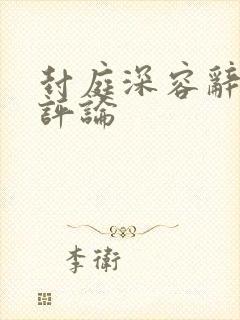 封庭深容辭
評論
李衛